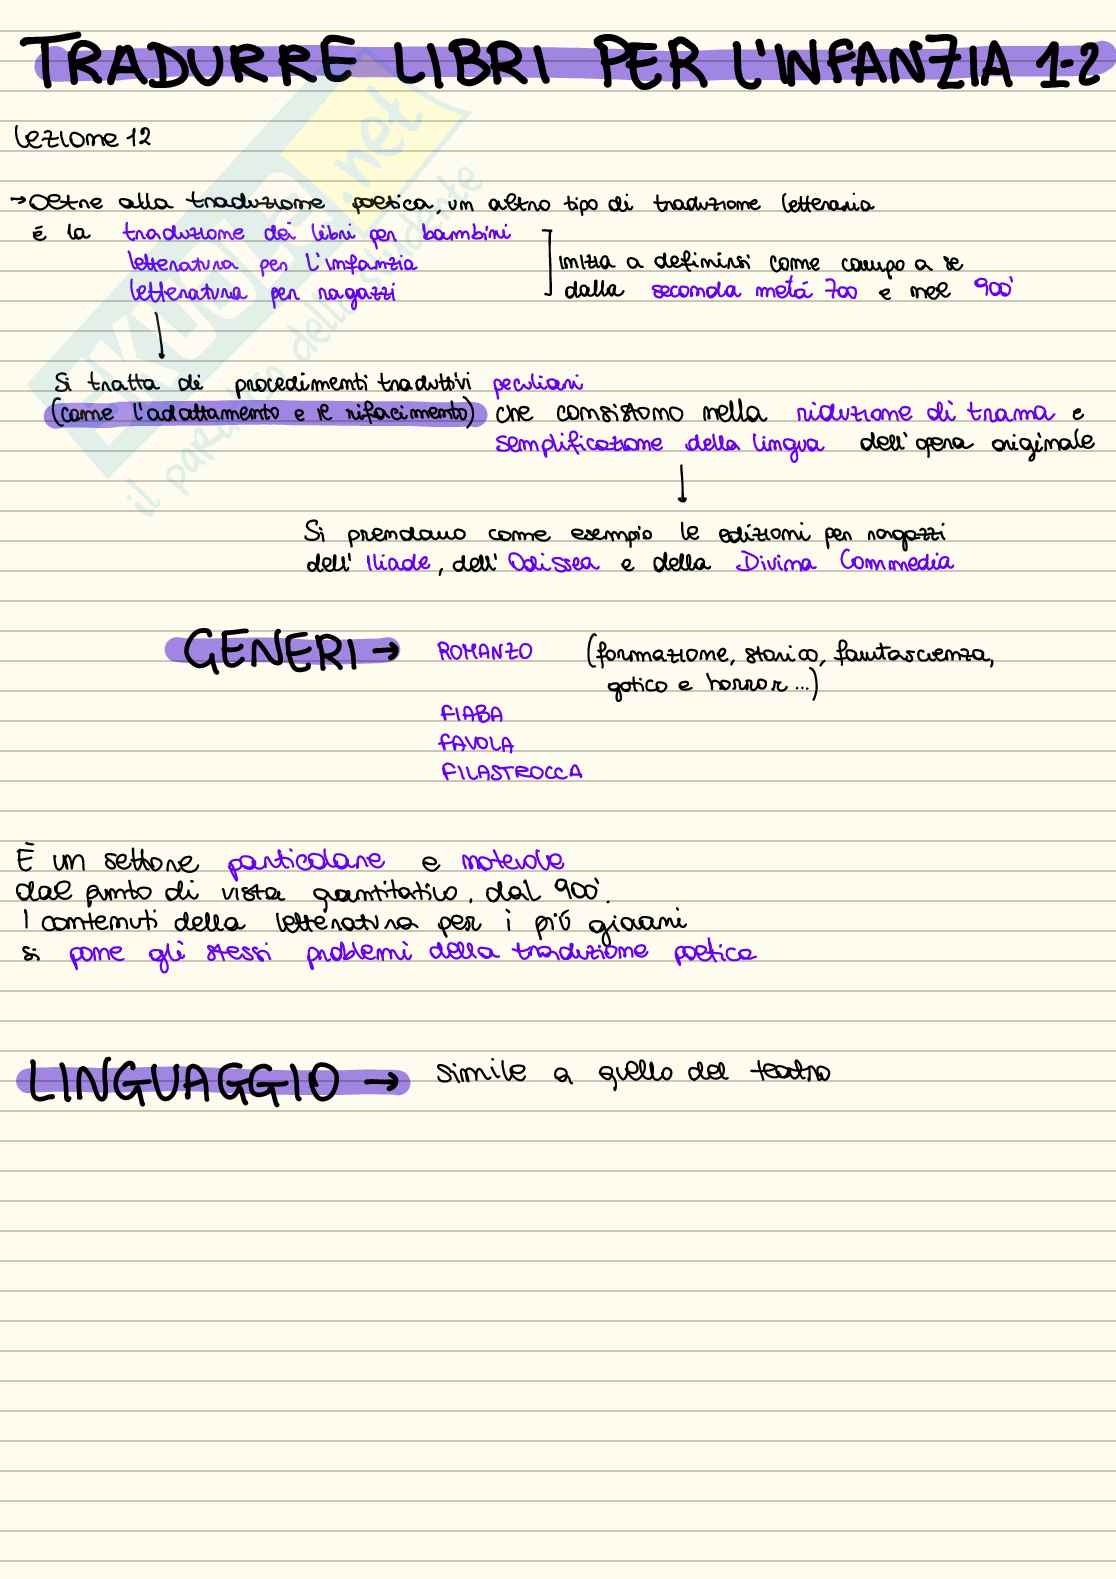 TRADURRE LIBRI PER L'INFANZIA 1-2
Lezione 12
→ Oltre alla traduzione poetica, un altro tipo di traduzione letteraria
é la traduzione dei libri per bambini
letteratura per l'infanzia
letteratura per ragazzi
inizia a definirsi come campo a se
dalla seconda metá 700 e nel 900'
Si tratta di procedimenti traduttivi peculiari
(come l'adattamento e il rifacimento) che consistono nella riduzione di trama e
semplificazione della lingua dell'opera originale
Si prendano come esempio le edizioni per ragazzi
dell'Iliade, dell'Odissea e della Divina Commedia
GENERI → ROMANZO (formazione, storico, fantascienza,
gotico e horror...)
FIABA
FAVOLA
FILASTROCCA
È un settore particolare e notevole
dal punto di vista quantitativo, dal 900'.
I contenuti della letteratura per i più giovani
si pone gli stessi problemi della traduzione poetica
LINGUAGGIO → simile a quello del teatro
SKUOLA.net
il paradiso dello studente